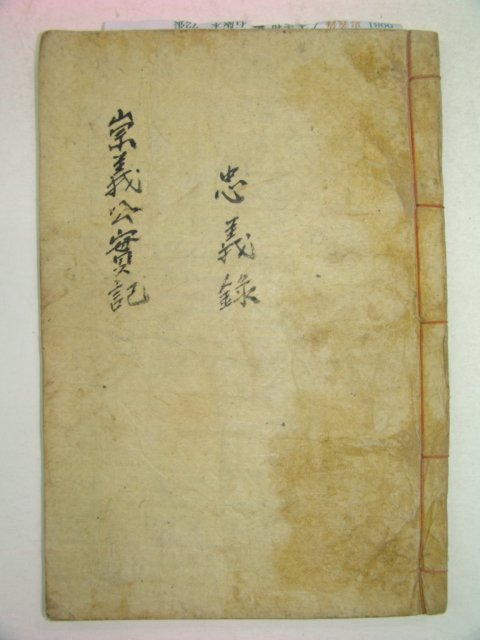 忠義錄
崇義公實記